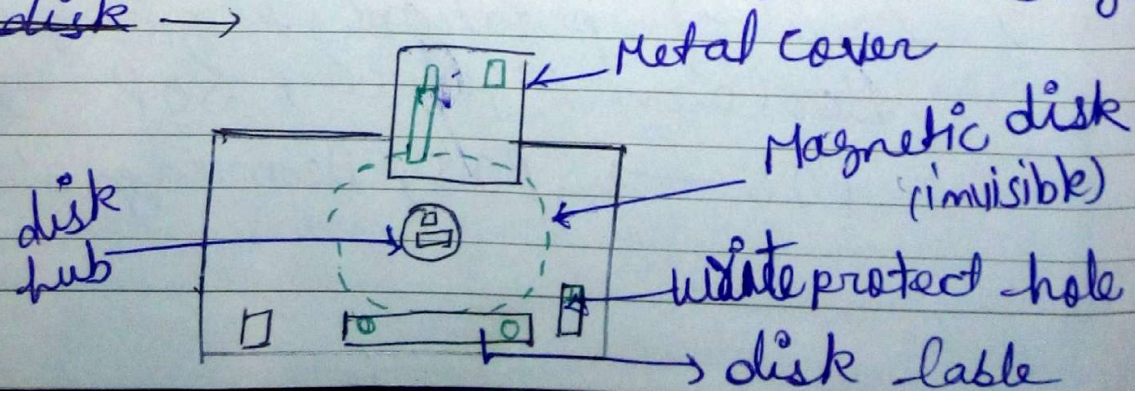 disk →
Metal cover
Magnetic disk
(invisible)
disk
hub
write protect hole
disk lable